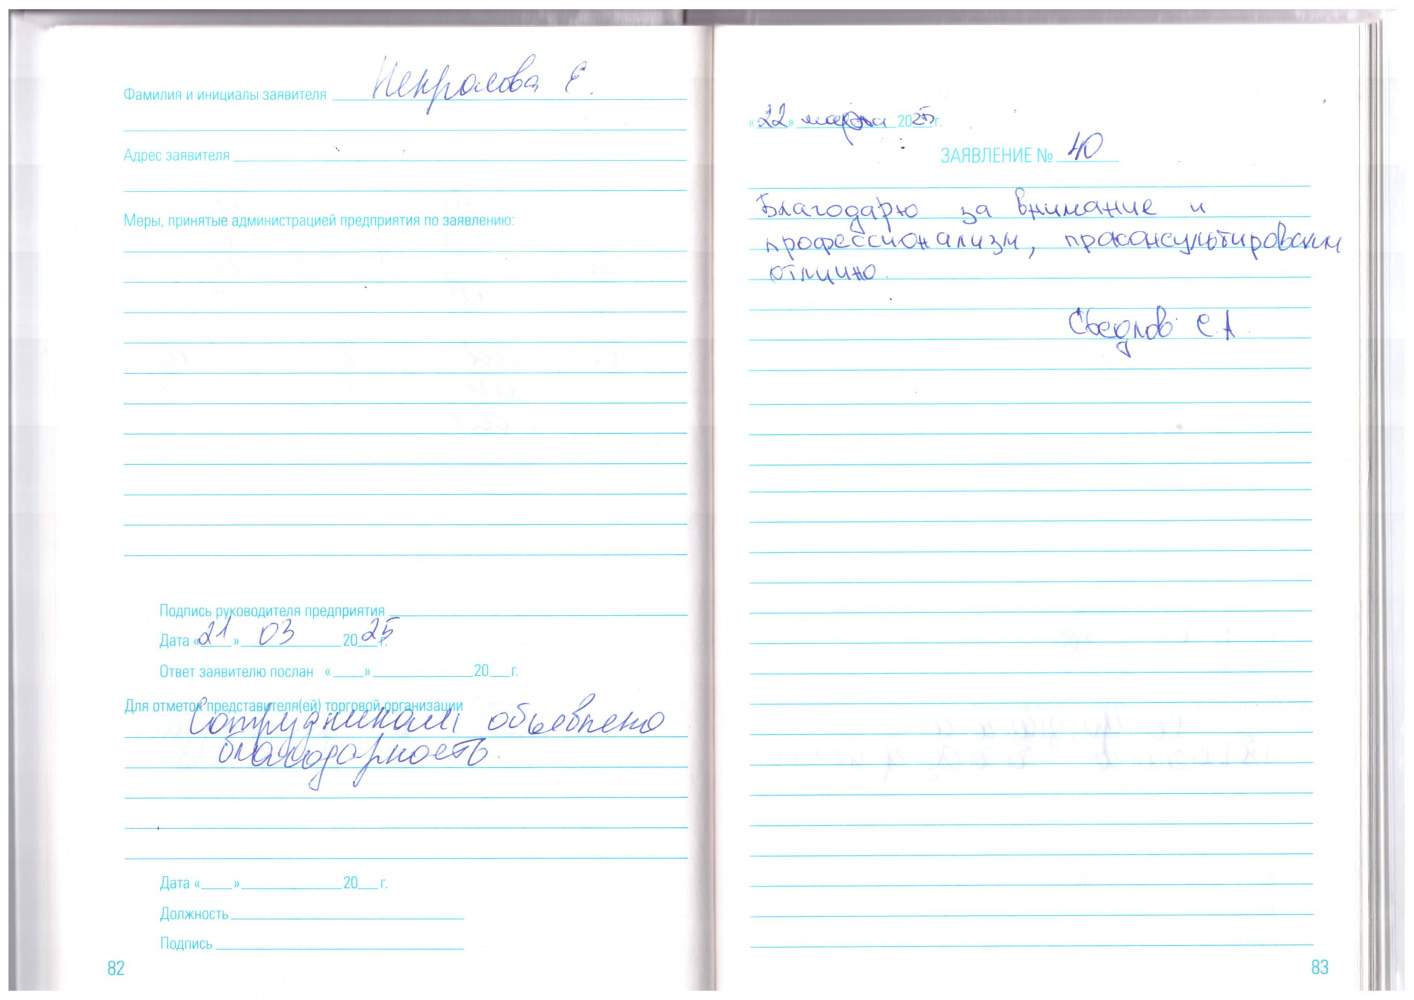 Фамилия и инициалы заявителя Некрасова Е.
Адрес заявителя
Меры, принятые администрацией предприятия по заявлению:
Подпись руководителя предприятия
Дата «21» 03 2025 г.
Ответ заявителю послан «____» ____ 20__ г.
Для отметок представителя(ей) торговой организации
Сотрудникам объявлена
благодарность.
Дата «____» ____ 20__ г.
Должность
Подпись
82
«22» марта 2025 г.
ЗАЯВЛЕНИЕ № 40
Благодарю за внимание и
профессионализм, проконсультировали
отлично.
С.А.
83